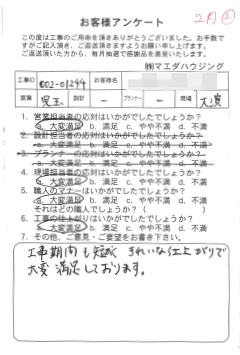 2月 ②
お客様アンケート
この度は工事のご用命を頂きありがとうございました。お手数で
すがご記入頂き、ご返送頂きますようお願い申し上げます。
ご返送頂いた方から、毎月抽選で感謝品を進呈いたします。
㈱マエダハウジング
工事ID 002-01244 お客様名
営業 児玉 設計 ー プランナー ー 現場 大濱
1. 営業担当者の応対はいかがでしたでしょうか?
a. 大変満足 b. 満足 c. やや不満 d. 不満
2. 設計担当者の応対はいかがでしたでしょうか?
a. 大変満足 b. 満足 c. やや不満 d. 不満
3. プランナーの応対はいかがでしたでしょうか?
a. 大変満足 b. 満足 c. やや不満 d. 不満
4. 現場担当者の応対はいかがでしたでしょうか?
a. 大変満足 b. 満足 c. やや不満 d. 不満
5. 職人のマナーはいかがでしたでしょうか?
a. 大変満足 b. 満足 c. やや不満 d. 不満
それはどの職人でしょうか? ( )
6. 工事の仕上がりはいかがでしたでしょうか?
a. 大変満足 b. 満足 c. やや不満 d. 不満
7. その他、ご意見・ご要望をお書き下さい。
工事期間も短く きれいな仕上がりで
大変満足しております。